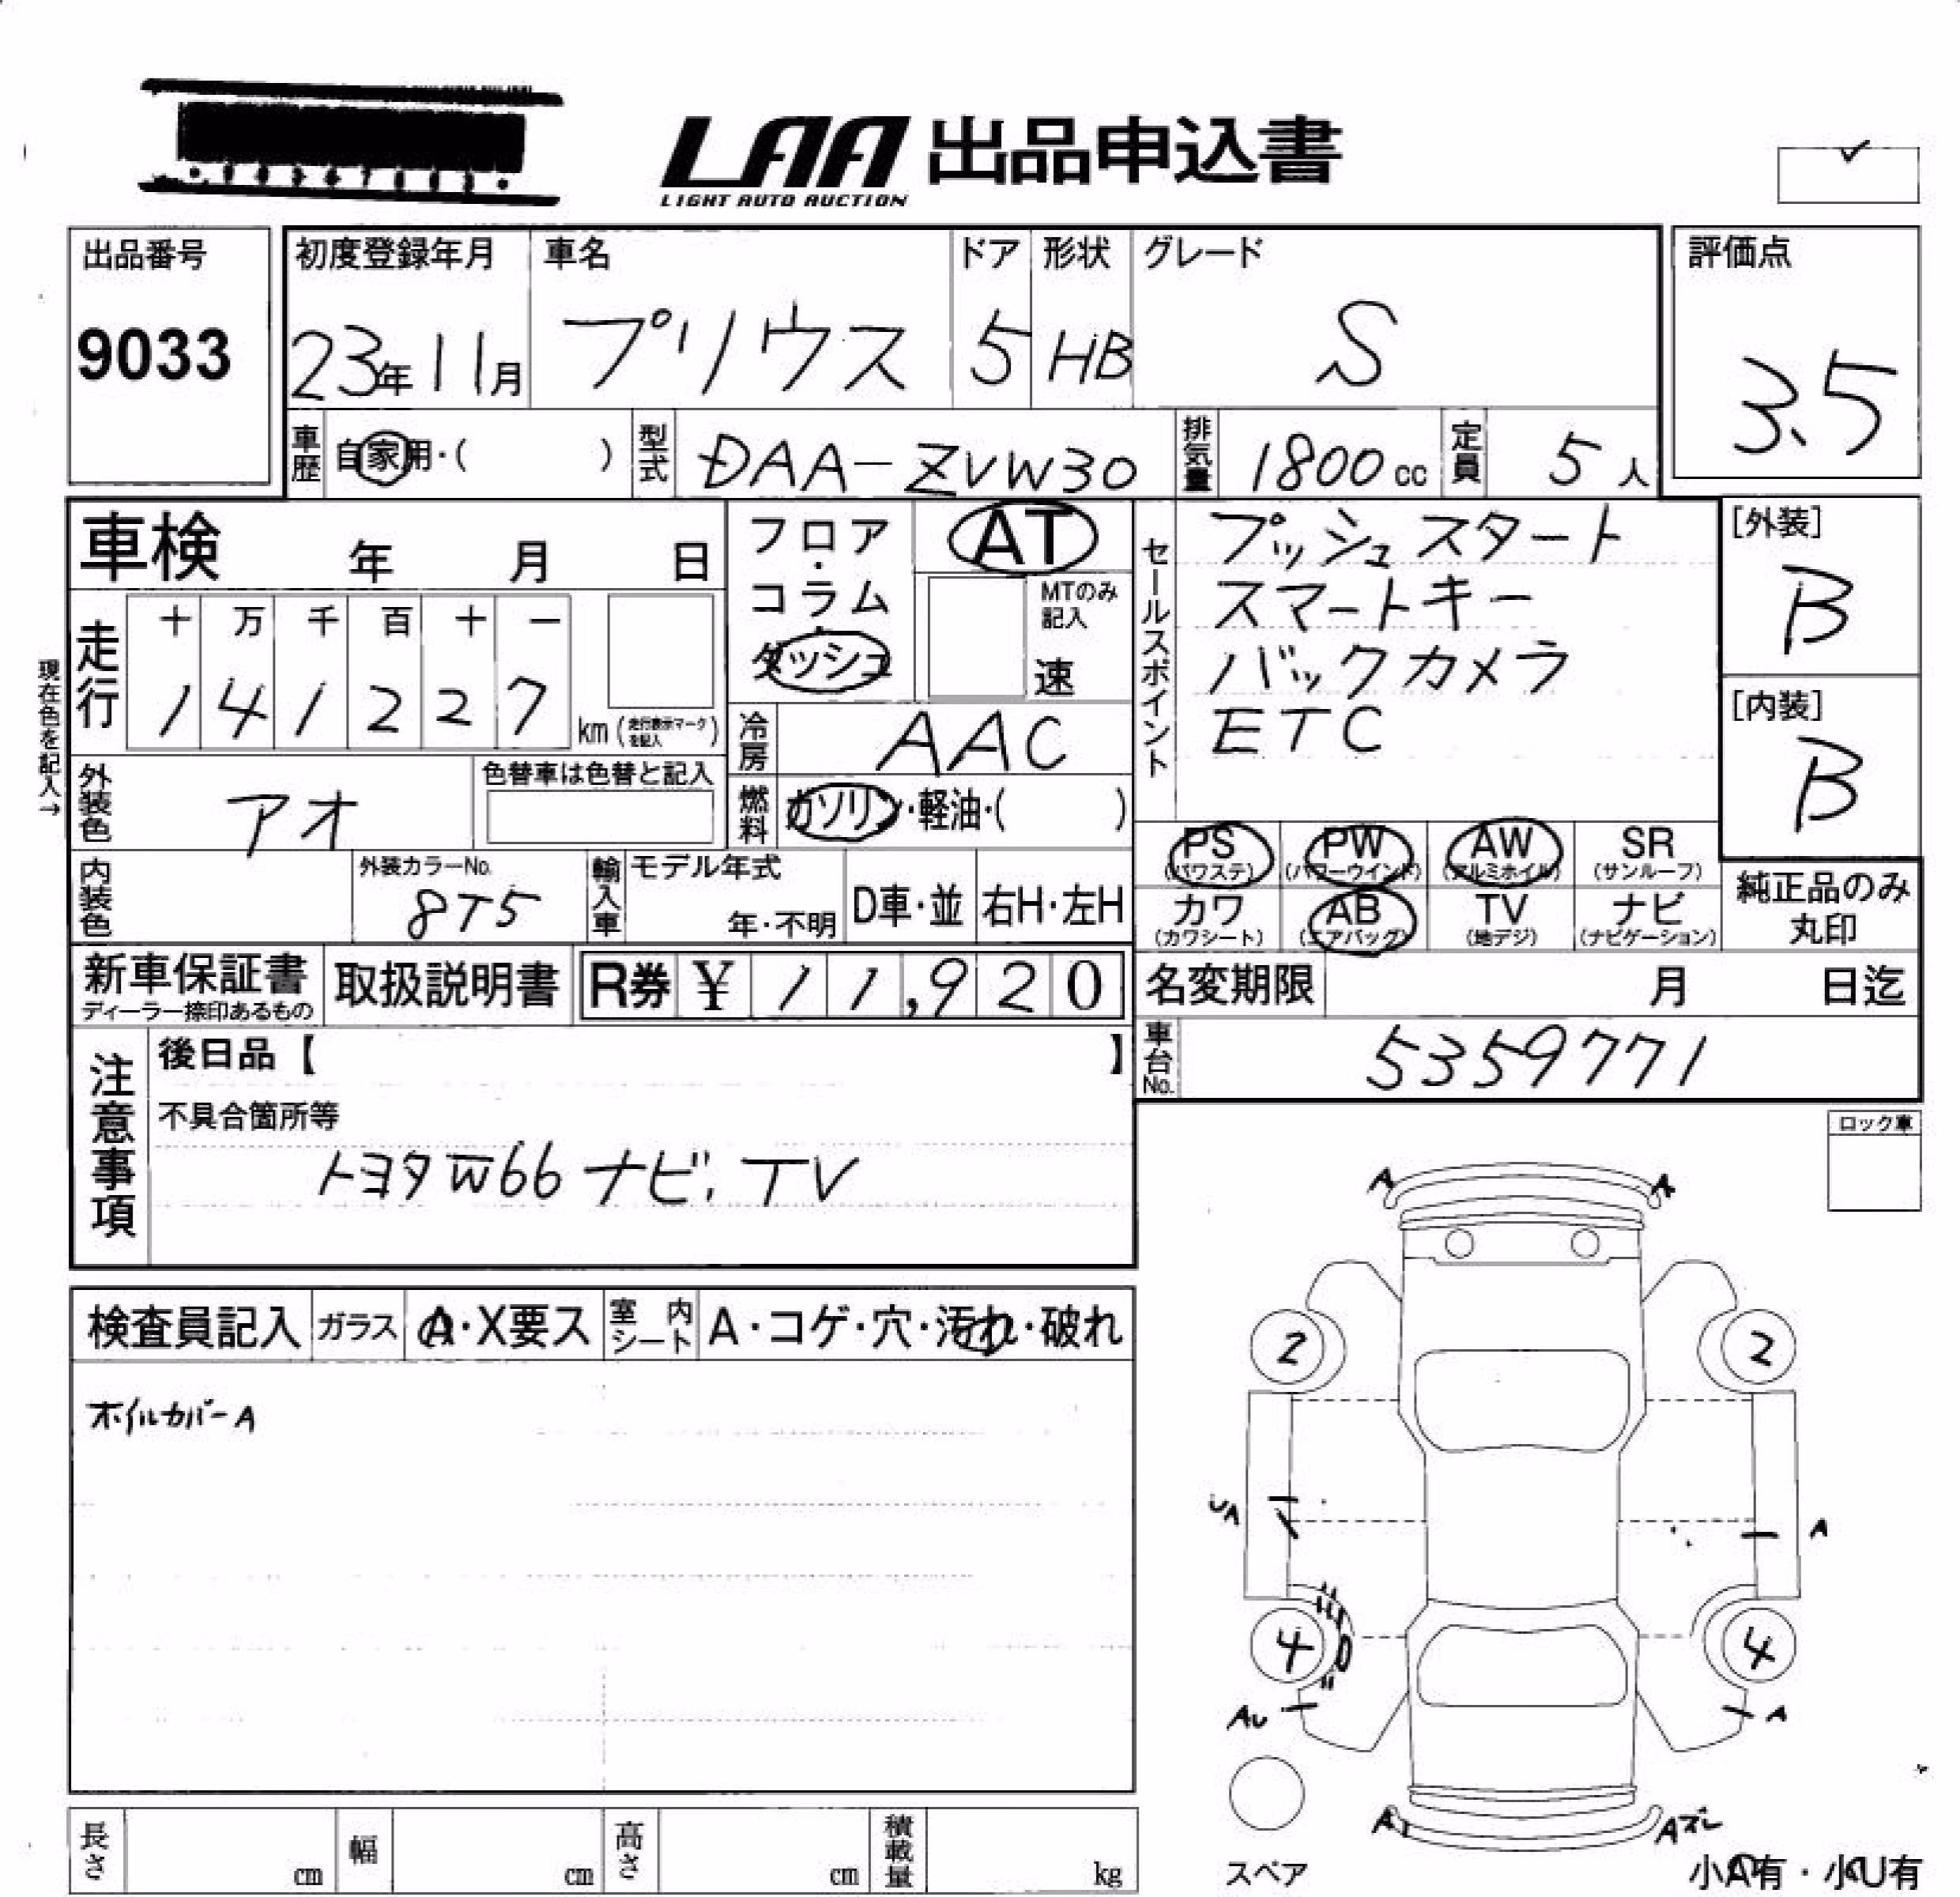 LAA 出品申込書
LIGHT AUTO AUCTION
出品番号
9033
初度登録年月
23年11月
車名
プリウス
ドア
5
形状
HB
グレード
S
評価点
3.5
車歴
自家用・( )
型式
DAA-ZVW30
排気量
1800cc
定員
5人
車検 年 月 日
フロア・
コラム・
ダッシュ
AT
MTのみ
記入
速
セールスポイント
プッシュスタート
スマートキー
バックカメラ
ETC
[外装]
B
[内装]
B
現在色を記入→
走行
十 万 千 百 十 一
1 4 1 2 2 7
km(走行表示マークを記入)
冷房
AAC
外装色
アオ
色替車は色替と記入
燃料
ガソリン・軽油・( )
内装色
外装カラーNo.
8T5
輸入車
モデル年式
年・不明
D車・並
右H・左H
PS
(パワステ)
PW
(パワーウインド)
AW
(アルミホイル)
SR
(サンルーフ)
カワ
(カワシート)
AB
(エアバッグ)
TV
(地デジ)
ナビ
(ナビゲーション)
純正品のみ
丸印
新車保証書
ディーラー捺印あるもの
取扱説明書
R券 ¥ 11,920
名変期限 月 日迄
車台No.
5359771
注意事項
後日品【 】
不具合箇所等
トヨタW66ナビ、TV
ロック車
検査員記入
ガラス
A・X要ス
室内シート
A・コゲ・穴・汚れ・破れ
ホイルカバーA
A A
2 2
UA A
4 4
AU A
A Aズレ
スペア
小A有・小U有
長さ cm
幅 cm
高さ cm
積載量 kg